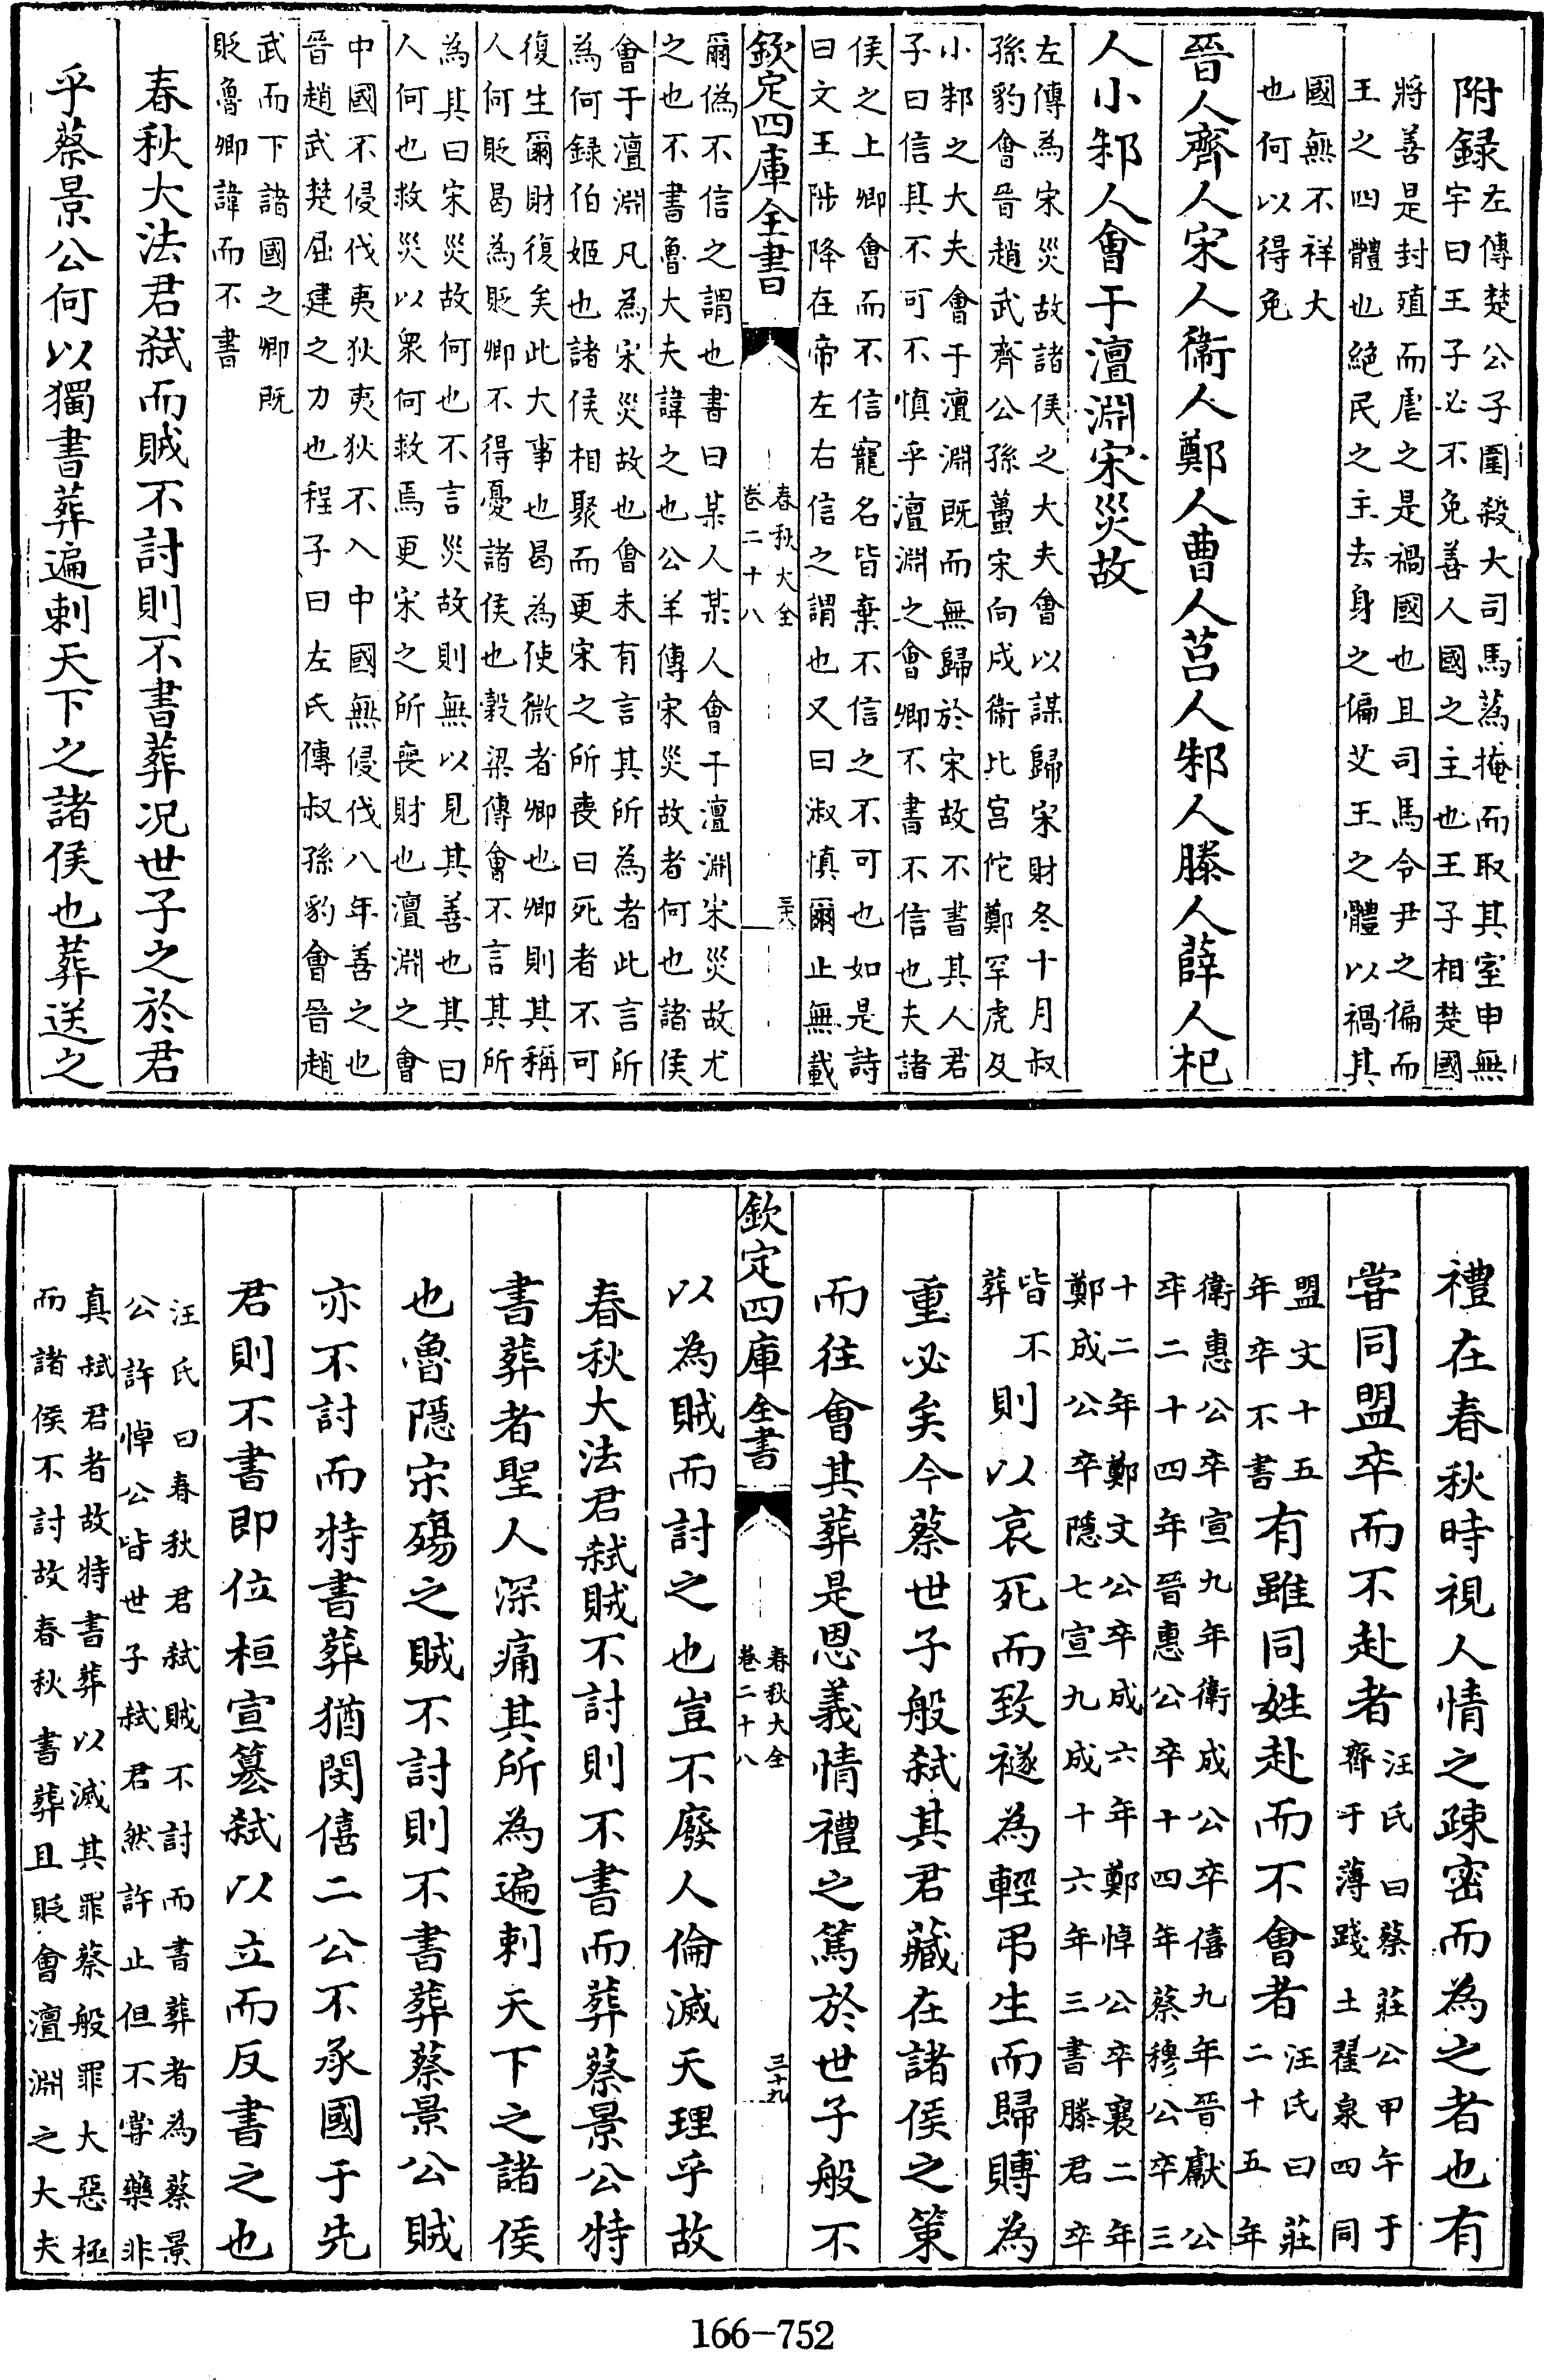 附録左傳楚公子圍殺大司馬蒍掩而取其室申無
宇曰王子必不免善人國之主也王子相楚國
將善是封殖而虐之是禍國也且司馬令尹之偏而
王之四體也絶民之主去身之偏艾王之體以禍其
國無不祥大
也何以得免
晉人齊人宋人衞人鄭人曹人莒人邾人滕人薛人杞
人小邾人會于澶淵宋災故
左傳為宋災故諸侯之大夫會以謀歸宋財冬十月叔
孫豹會晉趙武齊公孫蠆宋向戌衞北宫佗鄭罕虎及
小邾之大夫會于澶淵既而無歸於宋故不書其人君
子曰信其不可不慎乎澶淵之會卿不書不信也夫諸
侯之上卿會而不信寵名皆棄不信之不可也如是詩
曰文王陟降在帝左右信之謂也又曰淑慎爾止無載
欽定四庫全書
春秋大全
卷二十八
三十八
爾偽不信之謂也書曰某人某人會于澶淵宋災故尤
之也不書魯大夫諱之也公羊傳宋災故者何也諸侯
會于澶淵凡為宋災故也會未有言其所為者此言所
為何録伯姬也諸侯相聚而更宋之所喪曰死者不可
復生爾財復矣此大事也曷為使微者卿也卿則其稱
人何貶曷為貶卿不得憂諸侯也穀梁傳會不言其所
為其曰宋災故何也不言災故則無以見其善也其曰
人何也救災以衆何救焉更宋之所喪財也澶淵之會
中國不侵伐夷狄夷狄不入中國無侵伐八年善之也
晉趙武楚屈建之力也程子曰左氏傳叔孫豹會晉趙
武而下諸國之卿既
貶魯卿諱而不書
春秋大法君弑而賊不討則不書葬况世子之於君
乎蔡景公何以獨書葬遍刺天下之諸侯也葬送之
禮在春秋時視人情之疎密而為之者也有
嘗同盟卒而不赴者汪氏曰蔡莊公甲午于
齊于薄踐土翟泉四同
盟文十五
年卒不書有雖同姓赴而不會者汪氏曰莊
二十五年
衛惠公卒宣九年衛成公卒僖九年晉獻公
卒二十四年晉惠公卒十四年蔡穆公卒三
十二年鄭文公卒成六年鄭悼公卒襄二年
鄭成公卒隱七宣九成十六年三書滕君卒
皆不
葬則以哀死而致襚為輕弔生而歸賻為
重必矣今蔡世子般弑其君藏在諸侯之策
而往會其葬是恩義情禮之篤於世子般不
欽定四庫全書
春秋大全
卷二十八
三十九
以為賊而討之也豈不廢人倫滅天理乎故
春秋大法君弑賊不討則不書而葬蔡景公特
書葬者聖人深痛其所為遍刺天下之諸侯
也魯隠宋殤之賊不討則不書葬蔡景公賊
亦不討而特書葬猶閔僖二公不承國于先
君則不書即位桓宣簒弑以立而反書之也
汪氏曰春秋君弑賊不討而書葬者為蔡景
公許悼公皆世子弑君然許止但不嘗藥非
真弑君者故特書葬以滅其罪蔡般罪大惡極
而諸侯不討故春秋書葬且貶會澶淵之大夫
166-752